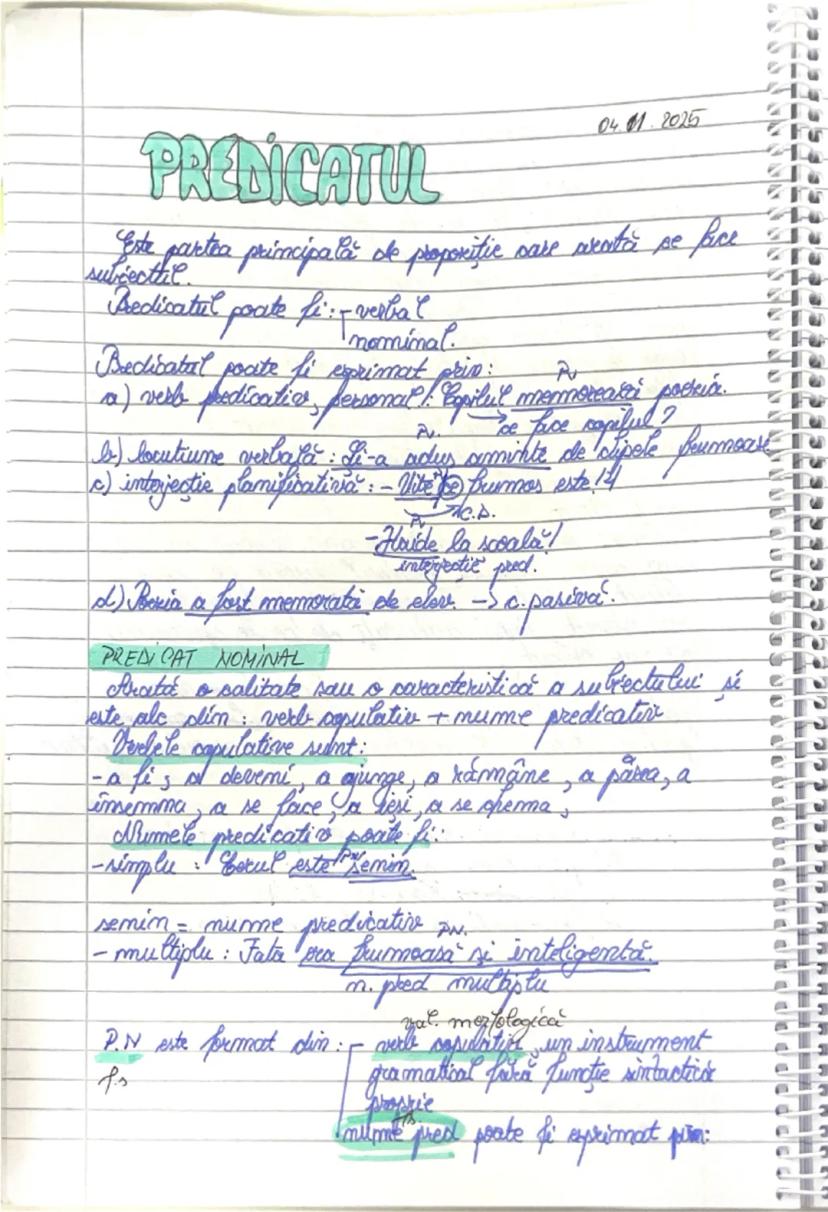 04.11.2025
PREDICATUL
Este partea principală de propoziție care arată ce face
subiectul.
Predicatul poate fi: - verbal
nominal.
Predicatul poate fi exprimat prin:
Pv
a) verb predicativ, personal: Copilul memorează poezia.
ce face copilul?
Pv.
b) locuțiune verbală: Și-a adus aminte de clipele frumoase
c) interjecție : - Uite ce frumos este!
Pv C.D.
- Haide la școală!
interjecție pred.
d) Poezia a fost memorată de elev. -> c. pasivă.
PREDICAT NOMINAL
Arată o calitate sau o caracteristică a subiectului și
este alc din: verb copulativ + nume predicativ
Verbele copulative sunt:
- a fi, a deveni, a ajunge, a rămâne, a părea, a
însemna, a se face, a ieși, a se chema,
Numele predicativ poate fi:
PN
- simplu: Cerul este senin.
senin = nume predicativ
PN.
- multiplu: Fata era frumoasă și inteligentă.
n. pred multiplu
val. morfologică
P.N este format din: - verb copulativ, un instrument
f.s gramatical fără funcție sintactică
proprie
f.s.
nume pred poate fi exprimat prin: